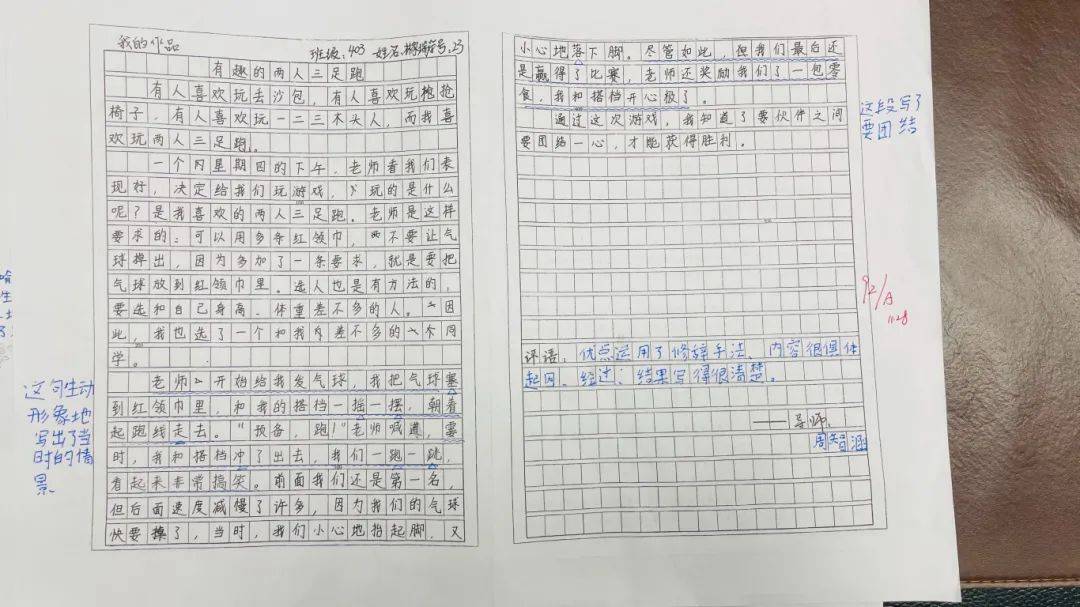 我的作品
班级:403 姓名: 号:23
有趣的两人三足跑
有人喜欢玩去沙包,有人喜欢玩抢抢
椅子,有人喜欢玩一二三木头人,而我喜
欢玩两人三足跑。
一个内星期四的下午,老师看我们表
现好,决定给我们玩游戏,玩的是什么
呢?是我喜欢的两人三足跑。老师是这样
要求的:可以用多条红领巾,不要让气
球掉出,因为多加了一条要求,就是要把
气球放到红领巾里。选人也是有方法的,
要选和自己身高、体重差不多的人。因
此,我也选了一个和我差不多的同
学。
老师开始给我发气球,我把气球塞
到红领巾里,和我的搭档一摇一摆,朝着
起跑线走去。“预备,跑!”老师喊道,
时,我和搭档冲了出去,我们一跑一跳,
看起来非常搞笑。前面我们还是第一名,
但后面速度减慢了许多,因为我们的气球
快要掉了,当时,我们小心地抬起脚,又
这句生动
形象地
写出了当
时的情
景
小心地落下脚。尽管如此,但我们最后还
是赢得了比赛,老师还奖励我们了一包零
食,我和搭档开心极了。
通过这次游戏,我知道了要伙伴之间
要团结一心,才能获得胜利。
这段写了
要团结
92/A
11.28
评语:优点运用了修辞手法、内容很俱体
起因、经过、结果写得很清楚。
——导师:
周智涵